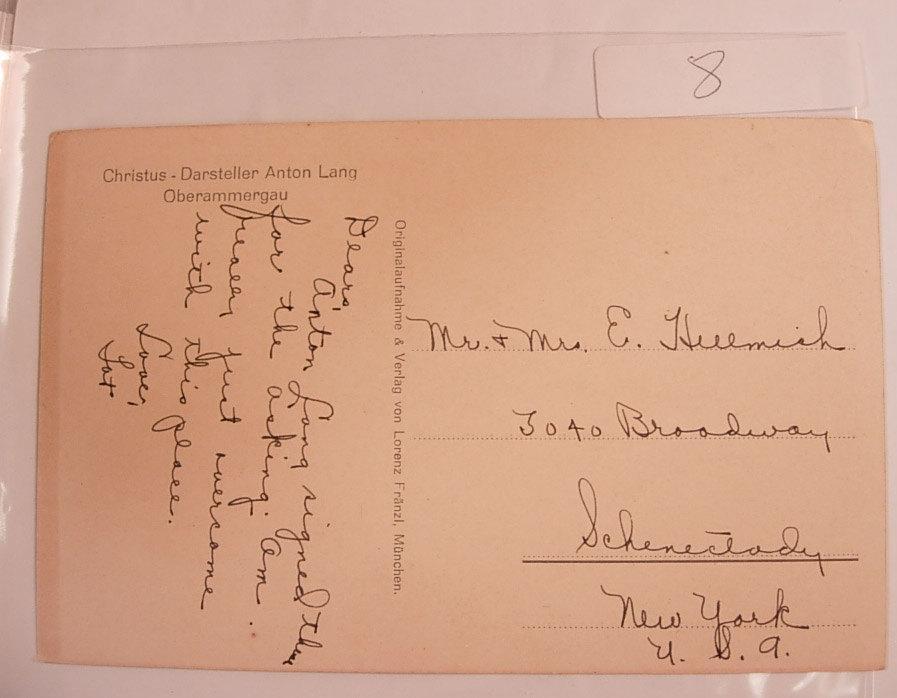 8
Christus - Darsteller Anton Lang
Oberammergau
Dears,
Anton Lang signed this
for the asking. Am
just overcome
with this place.
Love,
Originalaufnahme & Verlag von Lorenz Fränzl, München.
Mr. & Mrs. E. Hellmich
3040 Broadway
Schenectady
New York
U. S. A.